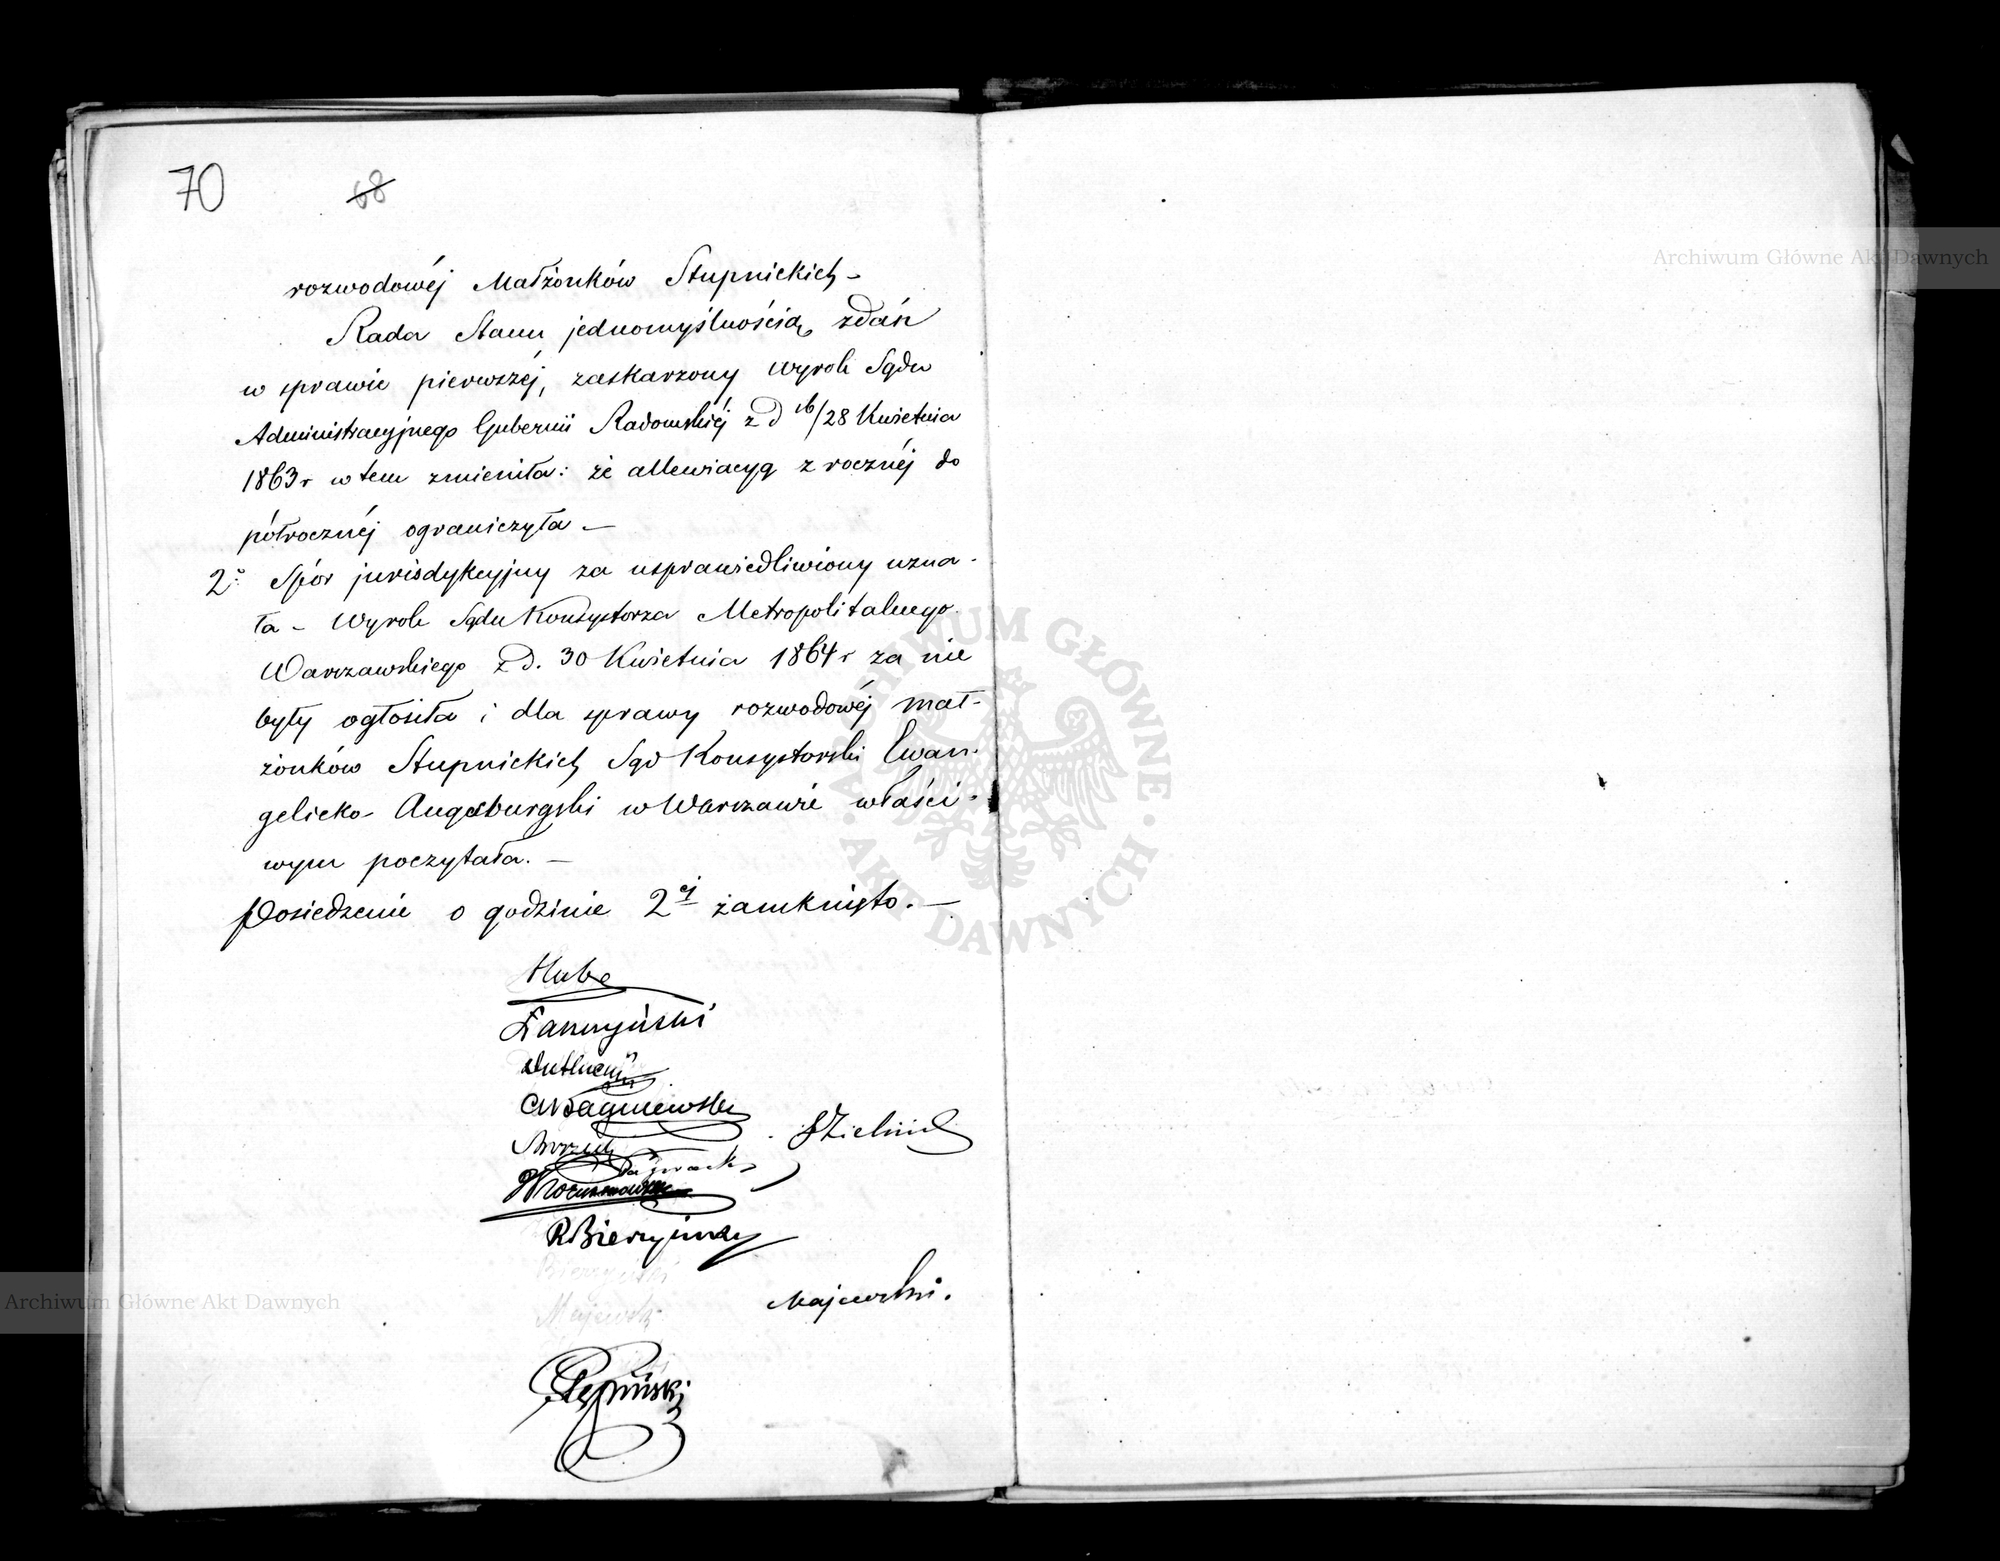 70
68
rozwodowéj Małżonków Stupnickich –
Rada Stanu jednomyślnością zdań
w sprawie pierwszéj, zaskarzony Wyrok Sądu
Administracyjnego Gubernii Radomskiéj z d 16/28 Kwietnia
1863 r w tem zmieniła: że allewiacyą z rocznéj do
półrocznéj ograniczyła –
2o Spór jurisdykcyjny za usprawiedliwiony uzna-
ła – Wyrok Sądu Konsystorza Metropolitalnego
Warszawskiego z d. 30 Kwietnia 1864 r za nie
były ogłosiła i dla sprawy rozwodowéj mał-
żonków Stupnickich Sąd Konsystorski Ewan-
gelicko Augsburgski w Warszawie właści-
wym poczytała. –
Posiedzenie o godzinie 2éj zamknięto. –
Hube
Łaszczyński
Bagniewski
SZieliński
RBierzyński
Bierzyński
Majewski
Majewski.
Archiwum Główne Akt Dawnych
Archiwum Główne Akt Dawnych
ARCHIWUM GŁÓWNE · AKT DAWNYCH ·